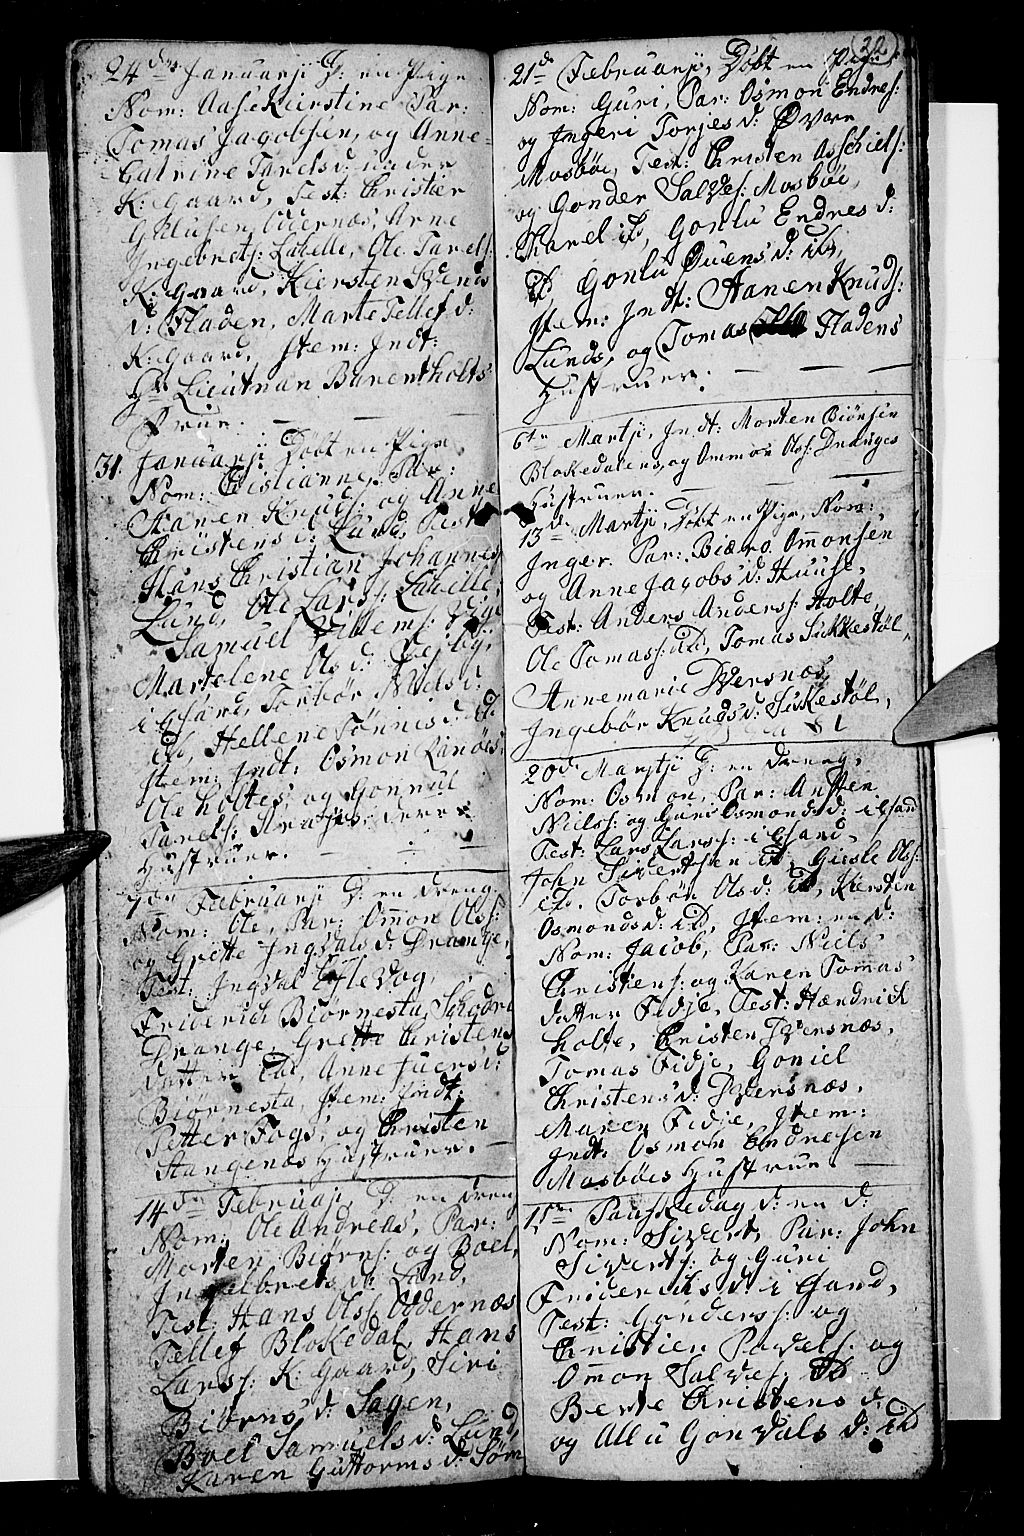 24de Januarji D: en Pige
Nom: Aase Kirstine Par:
Tomas Jagobsen, og Anne
Catrine Tarels d: under
K: Gaard, Test: Christen
Oddernæs, Arne
Ingebrets: Labelle, Ole Tarels:
K: gaard, Kiersten Svends
d: Fladen, Marte Tellef d:
K: Gaard, Item: Indt:
Hr Lieutnan Barentholts
Frue.
31. Januarji Døbt en Pige
Nom: Cistianne, Par:
Hanen Knuds: og Anne
Christens d: Lund, Test:
Hans Christian Johannes
Lund, Ole Lars: Labelle,
Samuel Villems: Vige
Martelene Ols d: Vejbye,
i gsard, Torbør Niels d:
id, Hellene Tønnis d: id
Item: Indt: Osmon Ranøes,
Ole Holtes, og Gonnul
Tarels: deres
Hustruer.
7de Februarji D: en dreng.
Nom: Ole, Par: Omon Ols:
og Grette Ingvals d: Drange,
Test: Ingval Eflevog,
Friderich Biørnesta,
Drange, Grette Christens
datter id, Anne Juers d:
Biørnesta, Item: Indt:
Petter Fogs, og Christen
Stangenes Hustruer.
14de Februarji, D: en dreng
Nom: Ole Andreas, Par:
Morten Biørns: og Boel
Ingelbrets d: Lund,
Test: Hans Ols: Oddernæs
Tellef Blokedal, Hans
Lars: K: Gaard, Siri
Biørns d: Sagen,
Boel Samuels d: Lund
Karen Guttorms d: Søm
22
21de Februarji, Døbt en Pige
Nom: Guri, Par: Osmon Endres:
og Ingeri Torjes d: Øvere
Mosbøe, Test: Christen Asschiels:
og Gonder Salves: Mosbøe,
Tarel id, Gonlu Endres d:
id, Gonlu Øuens d: ib,
Item: Indt: Hanen Knuds:
Lunds, og Tomas Fladens
Hustruer.
6te Martji, Indt: Morten Biønsen
Blokedalens, og Ommon Ols: Dranges
Hustruer.
13de Martji, Døbt en Pige, Nom:
Inger. Par: Biæro Omonsen
og Anne Jacobs d: Huuse,
Test: Anders Anders: Holte,
Ole Tomas: id, Tomas Sukkestøl,
Annemarie Tversnæs,
Ingebør Knuds d: Sukestøl,
20de Martji D: en dreng,
Nom: Osmon, Par: Austen
Niels: og Guri Osmonds d: i Gsand
Test: Lars Lars: i Gsand,
John Sivertsen id, Guule Ols:
id. Torbør Ols d: id, Kiersten
Osmonds d: id, Item: en d:
Nom: Jacob, Par: Niels
Christens: og Karen Tomas
datter Fidje, Test: Hændrick
Holte, Christen Tversnæs,
Tomas Fidje, Goniel
Christens d: Tversnæs,
Maren Fidje, Item:
Indt: Osmon Endresen
Mosbøes Hustrue.
1te Paaskedag d: en d:
Nom: Sivert, Par: John
Siverts: og Guri
Frideriks d: i Gsand,
Test: Gonders: og
Christien Povels: og
Omon Salves: ID
Berte Christens d: ID
og Allu Gonvals d: ID